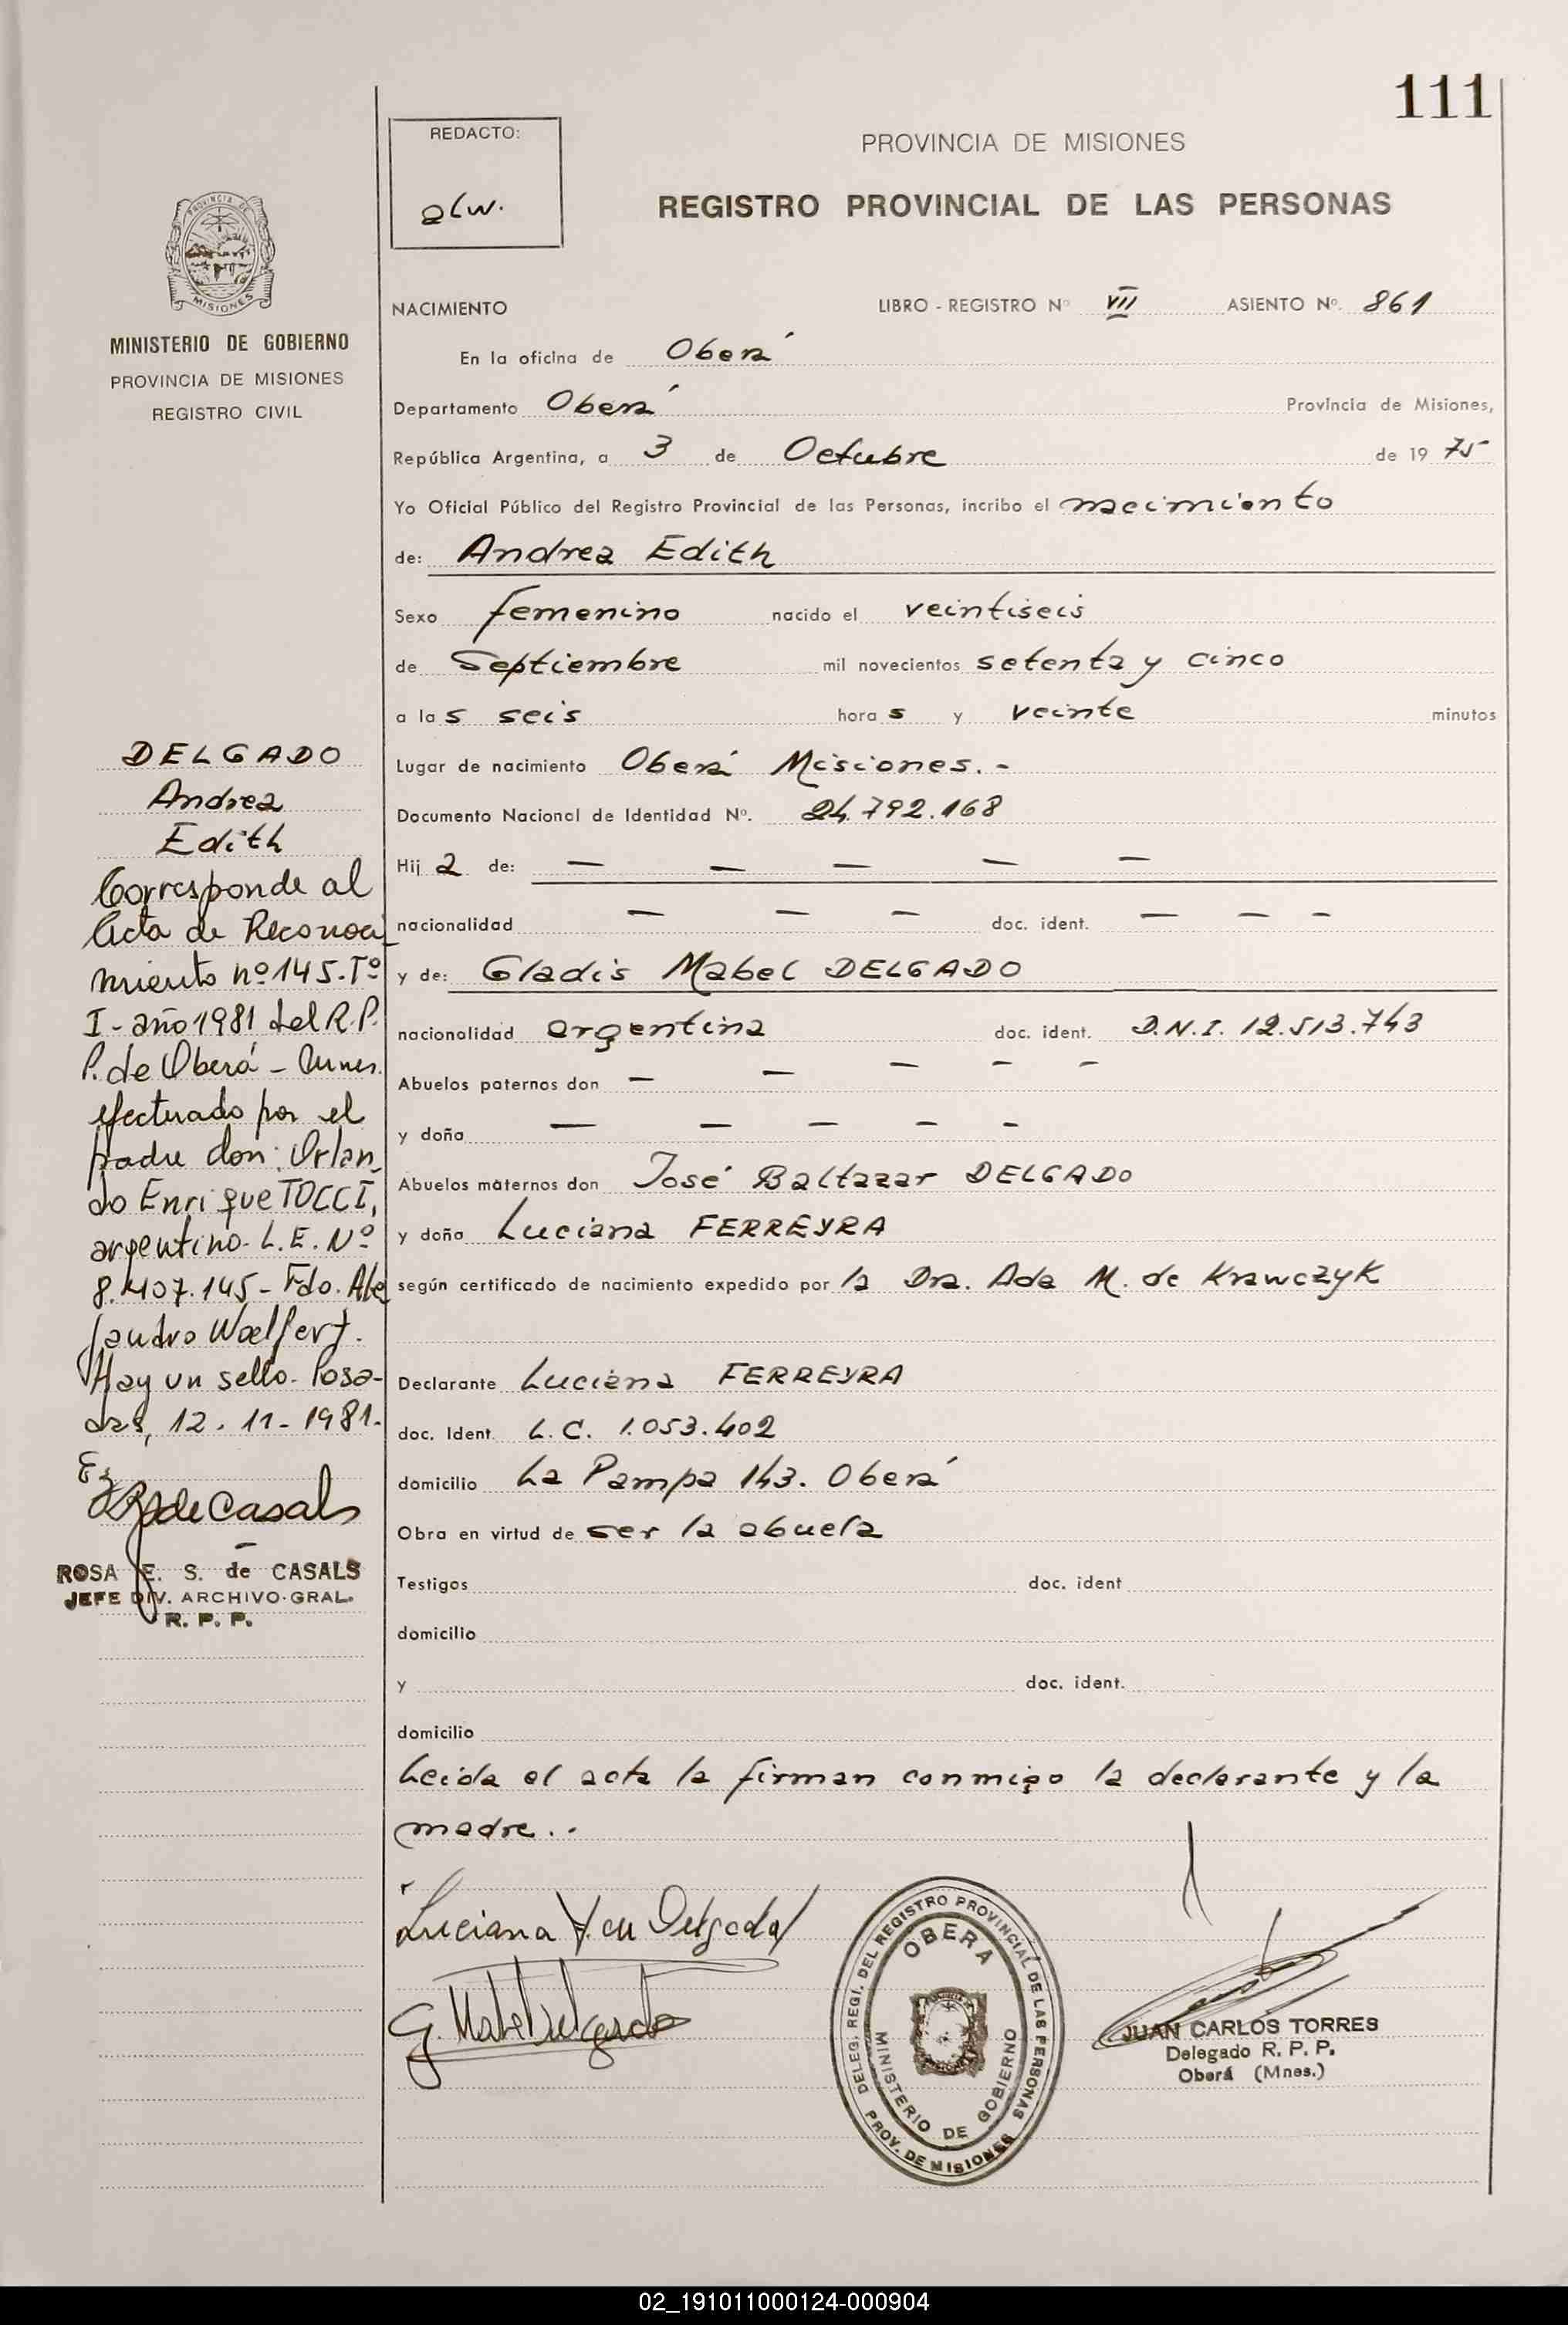 111
REDACTO:
PROVINCIA DE MISIONES
REGISTRO PROVINCIAL DE LAS PERSONAS
PROVINCIA DE
MISIONES
MINISTERIO DE GOBIERNO
PROVINCIA DE MISIONES
REGISTRO CIVIL
NACIMIENTO LIBRO - REGISTRO Nº VII ASIENTO Nº. 861
En la oficina de Oberá
Departamento Oberá Provincia de Misiones,
República Argentina, a 3 de Octubre de 1975
Yo Oficial Público del Registro Provincial de las Personas, incribo el nacimiento
de: Andrea Edith
Sexo femenino nacido el veintiseis
de Septiembre mil novecientos setenta y cinco
a las seis horas y veinte minutos
Lugar de nacimiento Oberá Misiones.-
Documento Nacional de Identidad Nº. 24.792.168
Hija de: — — — — —
nacionalidad — — — doc. ident. — — —
y de: Gladis Mabel DELGADO
nacionalidad argentina doc. ident. D.N.I. 12.513.743
Abuelos paternos don — — — — —
y doña — — — — —
Abuelos maternos don José Baltazar DELGADO
y doña Luciana FERREYRA
según certificado de nacimiento expedido por la Dra. Ada M. de Krawczyk
Declarante Luciana FERREYRA
doc. Ident. L.C. 1.053.402
domicilio La Pampa 143. Oberá
Obra en virtud de ser la abuela
Testigos doc. ident
domicilio
y doc. ident.
domicilio
Leida el acta la firman conmigo la declarante y la
madre..
DELGADO
Andrea
Edith
Corresponde al
Acta de Reconoci
miento nº 145-Tº
I-año 1981 del R.P.
P. de Oberá - Mnes.
efectuado por el
padre don: Orlan
do Enrique TOCCI,
argentino- L.E. Nº
8.407.145- Fdo. Ale
jandro Woelfert.
Hay un sello. Posa-
das, 12-11-1981.
ROSA E. S. de CASALS
JEFE DIV. ARCHIVO-GRAL.
R. P. P.
Luciana F. de Delgado
G. Mabel Delgado
DELEG. REGI. DEL REGISTRO PROVINCIAL DE LAS PERSONAS
OBERA
MINISTERIO DE GOBIERNO
PROV. DE MISIONES
JUAN CARLOS TORRES
Delegado R. P. P.
Oberá (Mnes.)
02_191011000124-000904